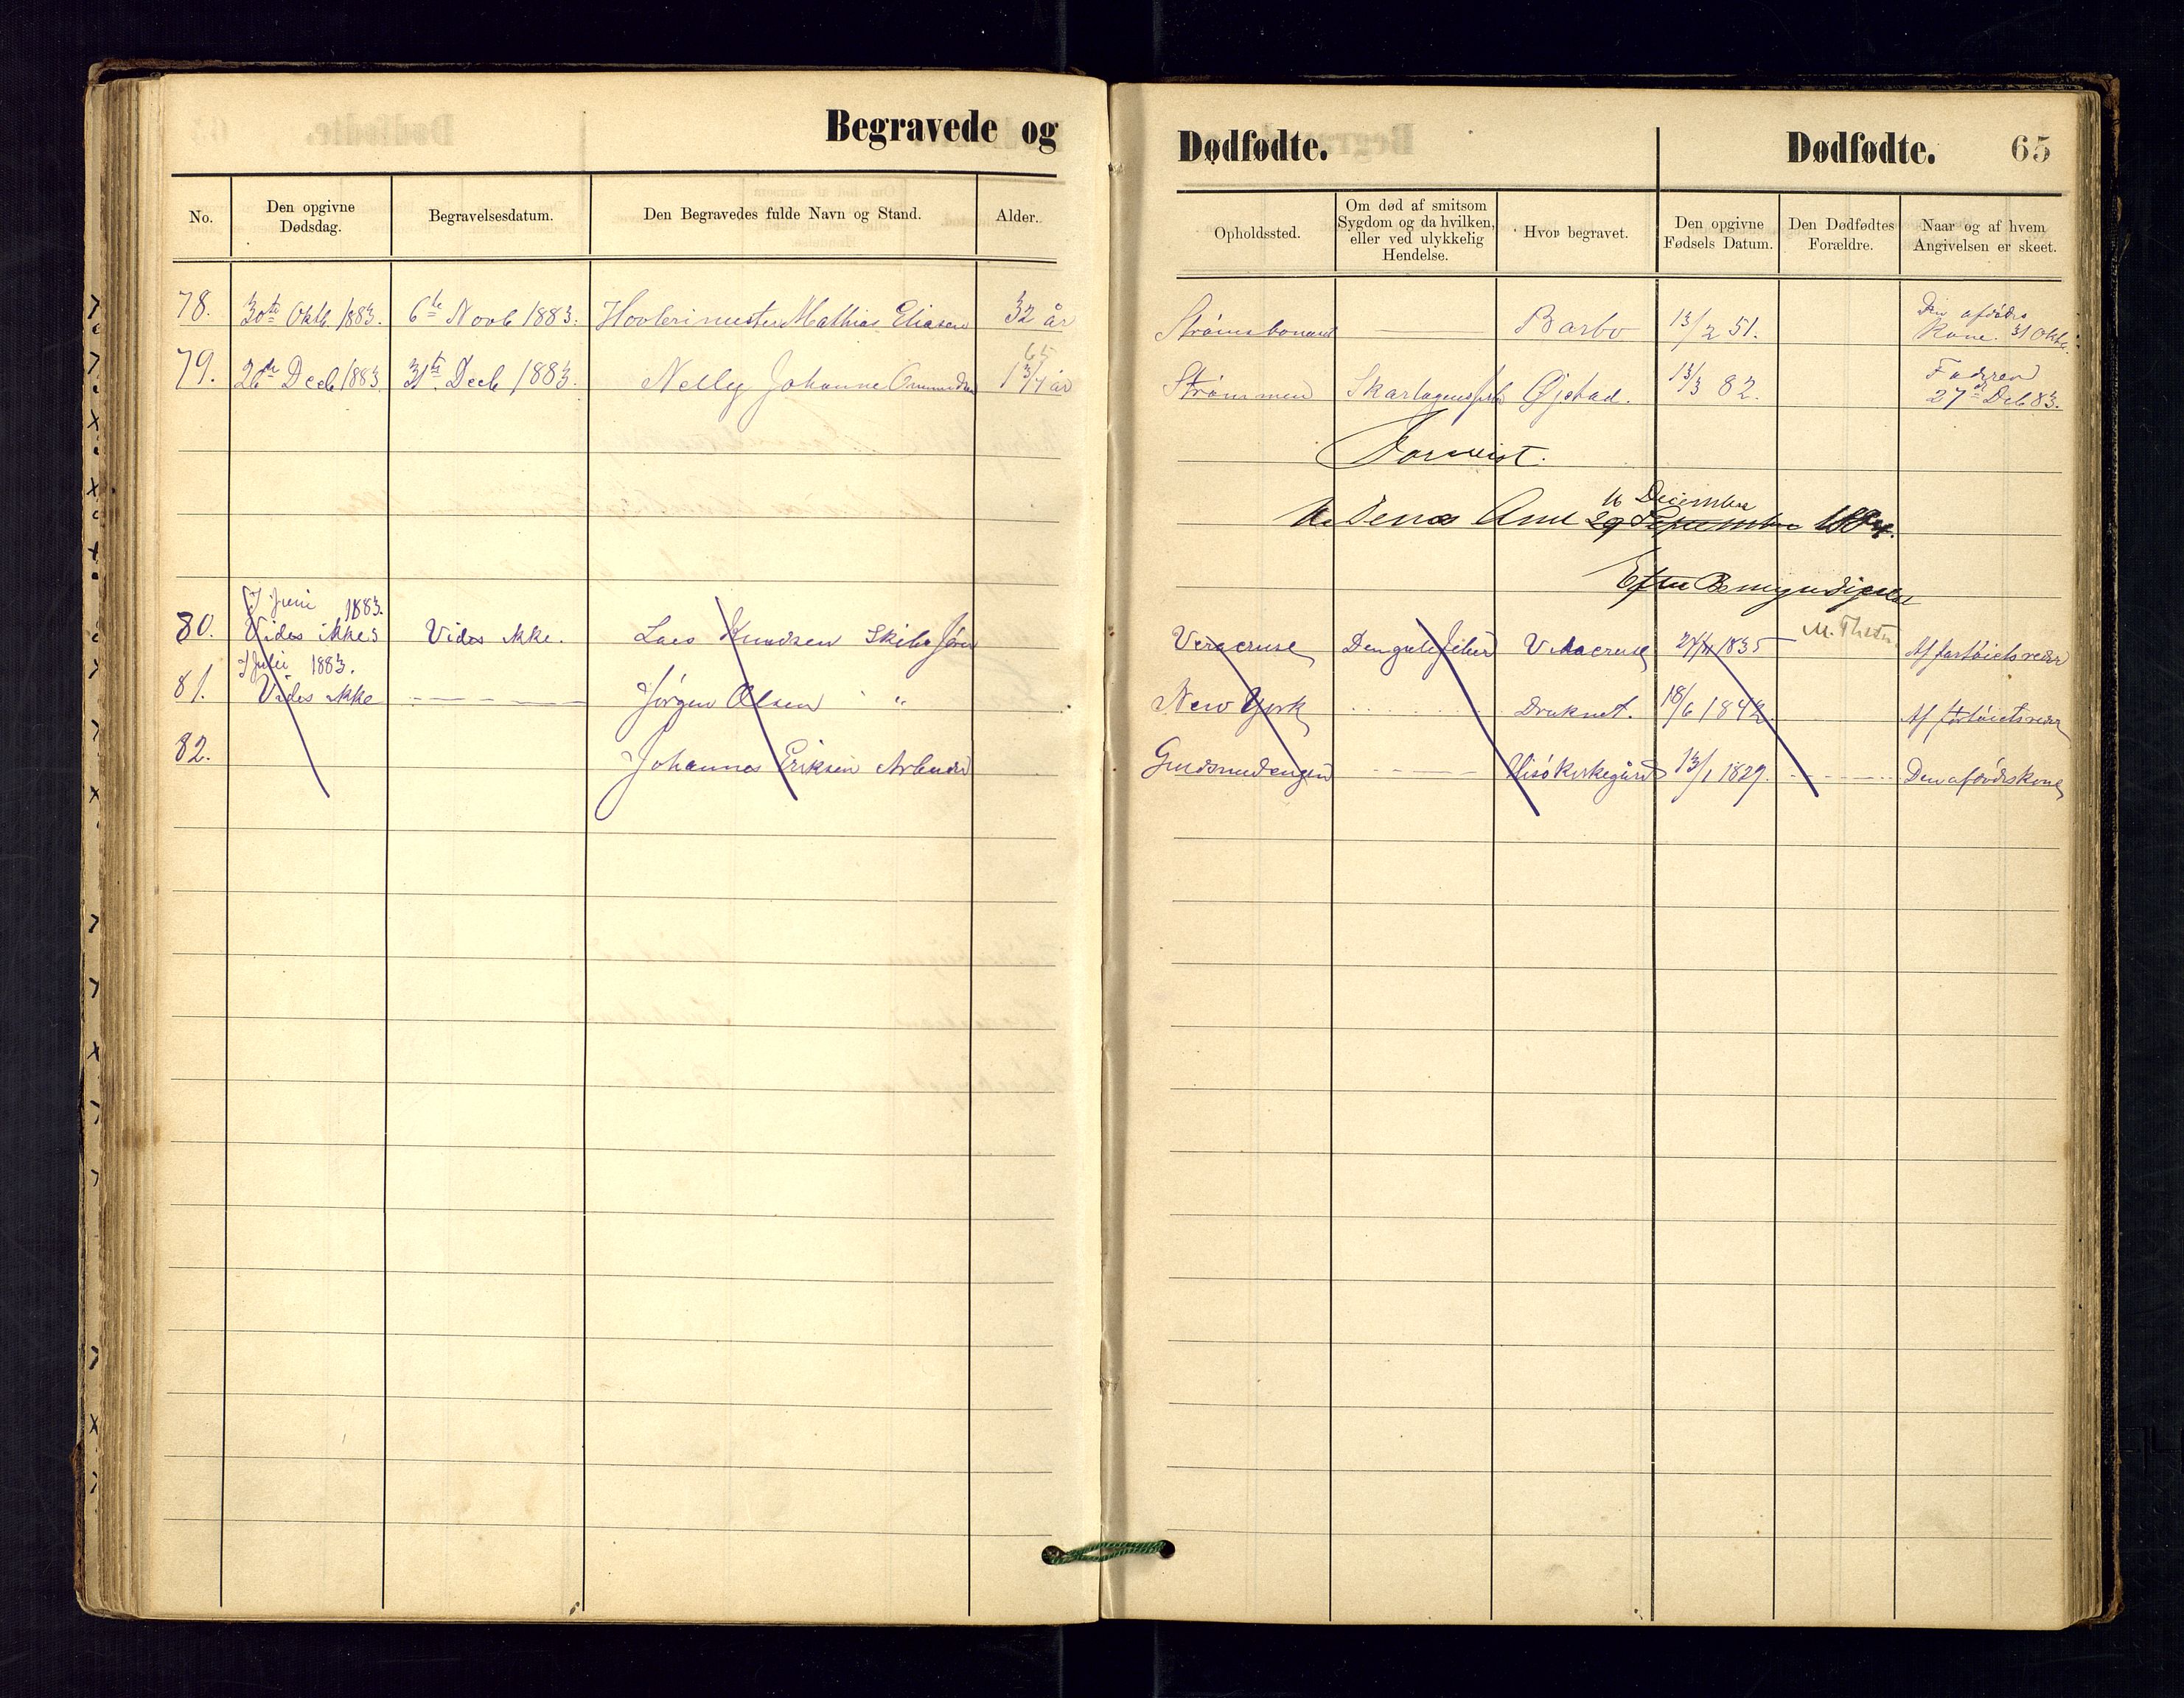 Begravede og
No.
Den opgivne Dødsdag.
Begravelsesdatum.
Den Begravedes fulde Navn og Stand.
Alder.
78. 30te Oktb. 1883. 6te Novb 1883. Mathias Eliasen 32 år
65
79. 26de Decb 1883. 31te Decb 1883. Nelly Johanne 1 3/4 år
7 Juni 1883.
80. Vides ikke Vides ikke. Lars Knudsen Skibsfører
7 Juli 1883.
81. Vides ikke Jørgen Olsen "
82. Johannes Eriksen Arbeider
Dødfødte.
Dødfødte. 65
Opholdssted.
Om død af smitsom Sygdom og da hvilken, eller ved ulykkelig Hendelse.
Hvor begravet.
Den opgivne Fødsels Datum.
Den Dødfødtes Forældre.
Naar og af hvem Angivelsen er skeet.
Den afdødes
Barbo 13/2 51. Kone. 31 Oktb.
Faderen
Strømmen Øjestad. 13/3 82. 27de Dcb 83.
Forevist.
16 December
Nedenæs Amt 29 September 1884.
Efter Bemyndigelse
M. Ths
Veracruse Den gule feber Veracruse 1835 Af fartøiets reder
New York Druknet. 18/6 1842 Af fartøiets reder
Hisø kirkegård 13/1 1829. Den afdødes kone